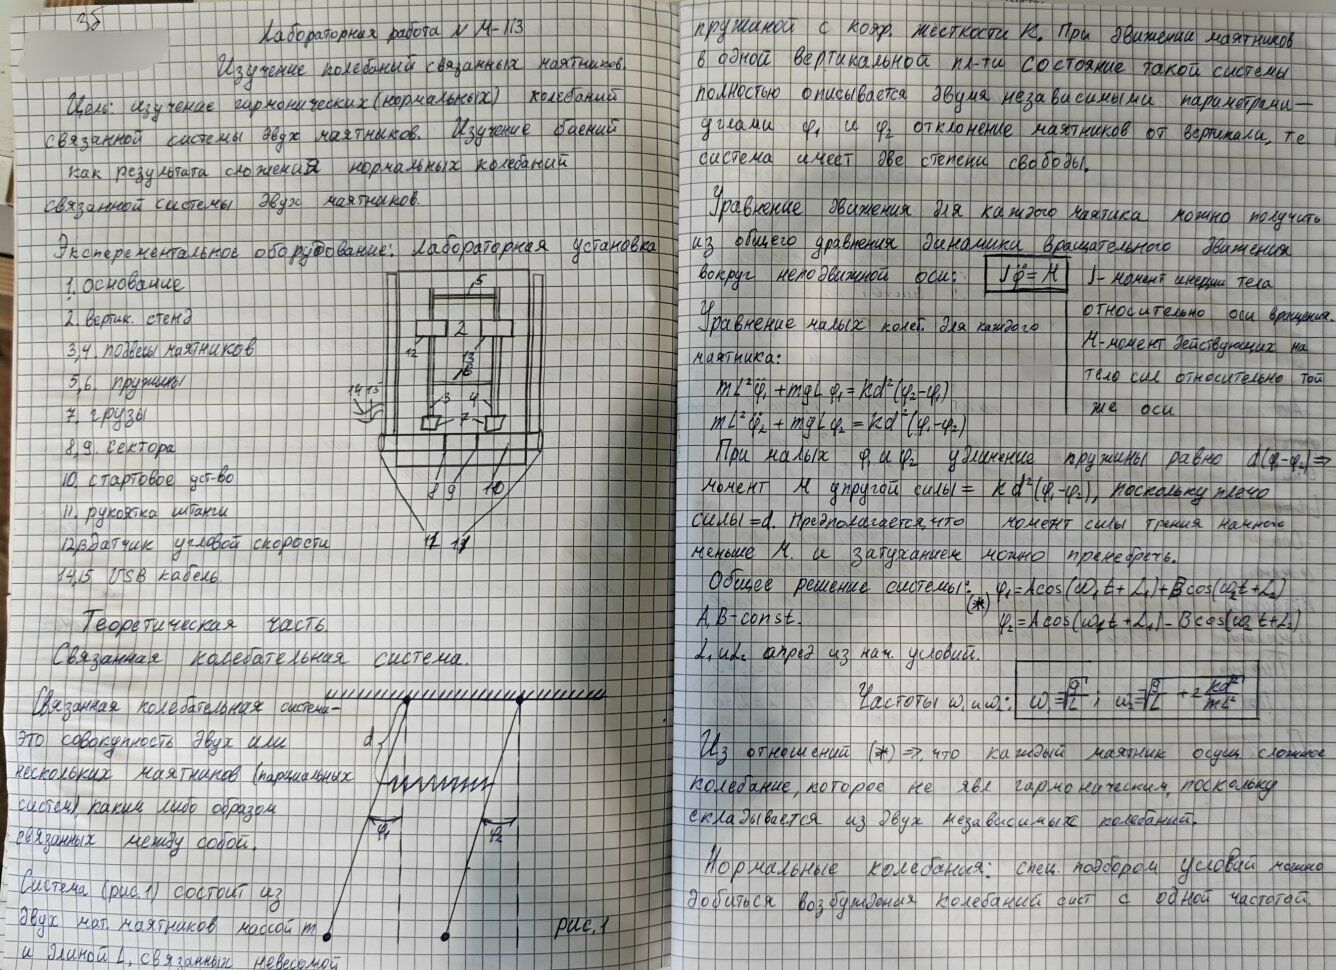 36
Лабораторная работа N М-113
Изучение колебаний связанных маятников
Цель: изучение гармонических (нормальных) колебаний
связанной системы двух маятников. Изучение биений
как результата сложения нормальных колебаний
связанной системы двух маятников.
Эксперементальное оборудование: лабораторная установка
1. основание
2. вертик. стенд
3,4. подвесы маятников
5,6. пружины
7. грузы
8,9. сектора
10. стартовое уст-во
11. рукоятка штанги
12,13 датчик угловой скорости
14,15 USB кабель.
5
2
12
13
6
14 15
3
4
7
8 9 10
11
Теоретическая часть.
Связанная колебательная система.
Связанная колебательная система-
это совокупность двух или
нескольких маятников (парциальных
систем), каким либо образом
связанных между собой.
Система (рис.1) состоит из
двух мат. маятников массой m
и длиной L, связанных невесомой
d
φ₁
φ₂
рис.1
пружиной с коэф. жесткости K. При движении маятников
в одной вертикальной пл-ти состояние такой системы
полностью описывается двумя независимыми параметрами—
углами φ₁ и φ₂ отклонение маятников от вертикали, т.е.
система имеет две степени свободы.
Уравнение движения для каждого маятика можно получить
из общего уравнения динамики вращательного движения
вокруг неподвижной оси: Iφ̈ = M
I- момент инерции тела
относительно оси вращения.
M-момент действующих на
тело сил относительно той
же оси
Уравнение малых колеб. для каждого
маятника:
mL²φ̈₁ + mgLφ₁ = Kd²(φ₂-φ₁)
mL²φ̈₂ + mgLφ₂ = Kd²(φ₁-φ₂)
При малых φ₁ и φ₂ удлинение пружины равно d(φ₁-φ₂) ⇒
момент M упругой силы = Kd²(φ₁-φ₂), поскольку плечо
силы = d. Предполагается, что момент силы трения намного
меньше M. и затуханием можно пренебречь.
Общее решение системы: φ₁ = Acos(ω₁t + L₁) + Bcos(ω₂t + L₂)
(*)
A, B-const. φ₂ = Acos(ω₁t + L₁) - Bcos(ω₂t + L₂)
L₁ и L₂ опред из нач. условий.
Частоты ω₁ и ω₂: ω₁ = √g/L ; ω₂ = √g/L + 2 kd²/mL²
Из отношений (*) ⇒, что каждый маятник осущ сложное
колебание, которое не явл гармоническим, поскольку
складывается из двух независимых колебаний.
Нормальные колебания: спец. подбором условий можно
добиться возбуждения колебаний сист с одной частотой.